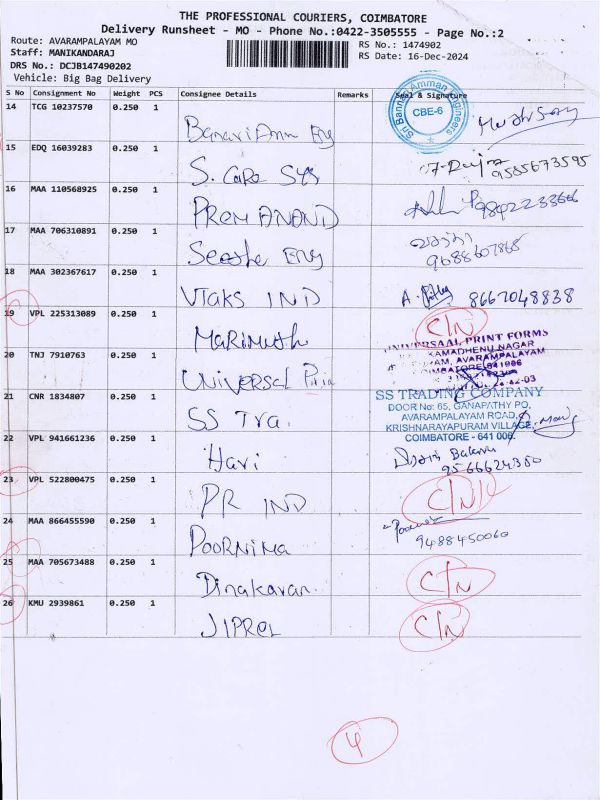 THE PROFESSIONAL COURIERS, COIMBATORE
Delivery Runsheet - MO - Phone No.:0422-3505555 - Page No.:2
Route: AVARAMPALAYAM MO
Staff: MANIKANDARAJ
DRS No.: DCJB147490202
Vehicle: Big Bag Delivery
RS No.: 1474902
RS Date: 16-Dec-2024
S No Consignment No Weight PCS Consignee Details Remarks Seal & Signature
14 TCG 10237570 0.250 1 Eng
Sri Bannari Amman Engineers
CBE-6
15 EDQ 16039283 0.250 1 S. Care Sys
9585673595
16 MAA 110568925 0.250 1 PREM ANAND
17 MAA 706310891 0.250 1 Eng
18 MAA 302367617 0.250 1 VTAKS IND
8667048838
19 VPL 225313089 0.250 1 Marimuth
C/N
20 TNJ 7910763 0.250 1 Universal
UNIVERSAAL PRINT FORMS
KAMADHENU NAGAR
AVARAMPALAYAM
21 CNR 1834807 0.250 1 SS Tra.
SS TRADING COMPANY
DOOR No: 65, GANAPATHY PO,
AVARAMPALAYAM ROAD,
KRISHNARAYAPURAM VILLAGE,
COIMBATORE - 641 006.
22 VPL 941661236 0.250 1 Hari
9566624350
23 VPL 522800475 0.250 1 PR IND
C/N
24 MAA 866455590 0.250 1 POORNIMA
9488450060
25 MAA 705673488 0.250 1 Dinakaran
C/N
26 KMU 2939861 0.250 1 JIPREL
C/N
4